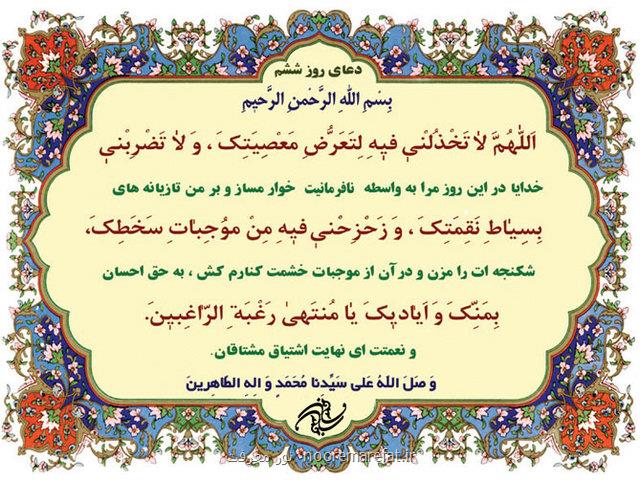 دعای روز ششم
بِسْمِ اللهِ الرَّحْمنِ الرَّحیمِ
اَللّهُمَّ لاٰ تَخْذُلْني فیهِ لِتَعَرُّضِ مَعْصِیَتِکَ ، وَ لاٰ تَضْرِبْني
خدایا در این روز مرا به واسطه نافرمانیت خوار مساز و بر من تازیانه های
بِسِیٰاطِ نَقِمَتِکَ ، وَ زَحْزِحْني فیهِ مِنْ مُوجِبٰاتِ سَخَطِکَ،
شکنجه ات را مزن و در آن از موجبات خشمت کنارم کش ، به حق احسان
بِمَنِّکَ وَ اَیٰادیکَ یٰا مُنتَهیٰ رَغْبَةِ الرّٰاغِبینَ.
و نعمتت ای نهایت اشتیاق مشتاقان.
وَ صَلَ اللهُ عَلی سَیِّدِنا مُحَمَدٍ وَ الِهِ الطّاهِرینَ
نور معرفت nooremarefat.ir